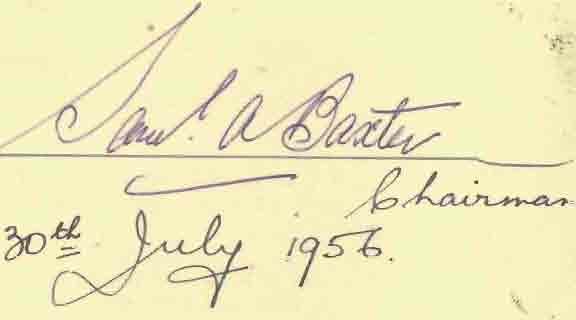 Saml. A Baxter
Chairman
30th July 1956.